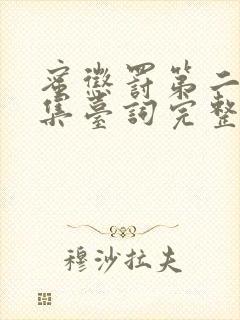 蜜懲罰第二
集臺詞完整
穆沙拉夫